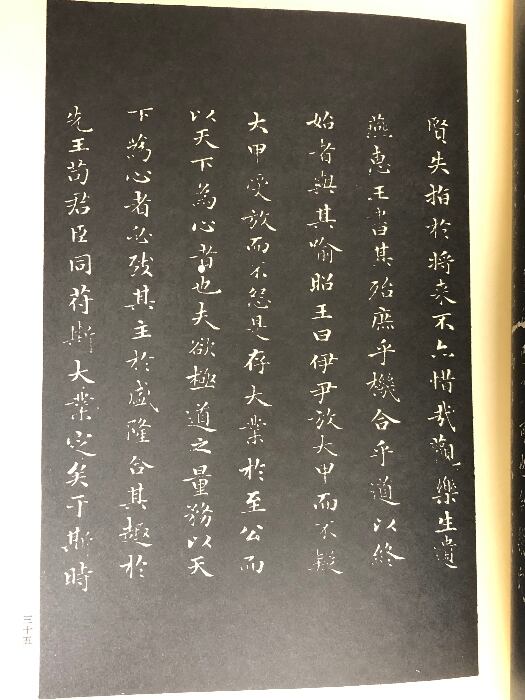 賢失指於将来不亦惜哉觀樂生遺
燕惠王書其殆庶乎機合乎道以終
始者與其喻昭王曰伊尹放大甲而不疑
大甲受放而不怨是存大業於至公而
以天下為心者也夫欲極道之量務以天
下為心者必致其主於盛隆合其趣於
先王苟君臣同符斯大業定矣于斯時
三十五